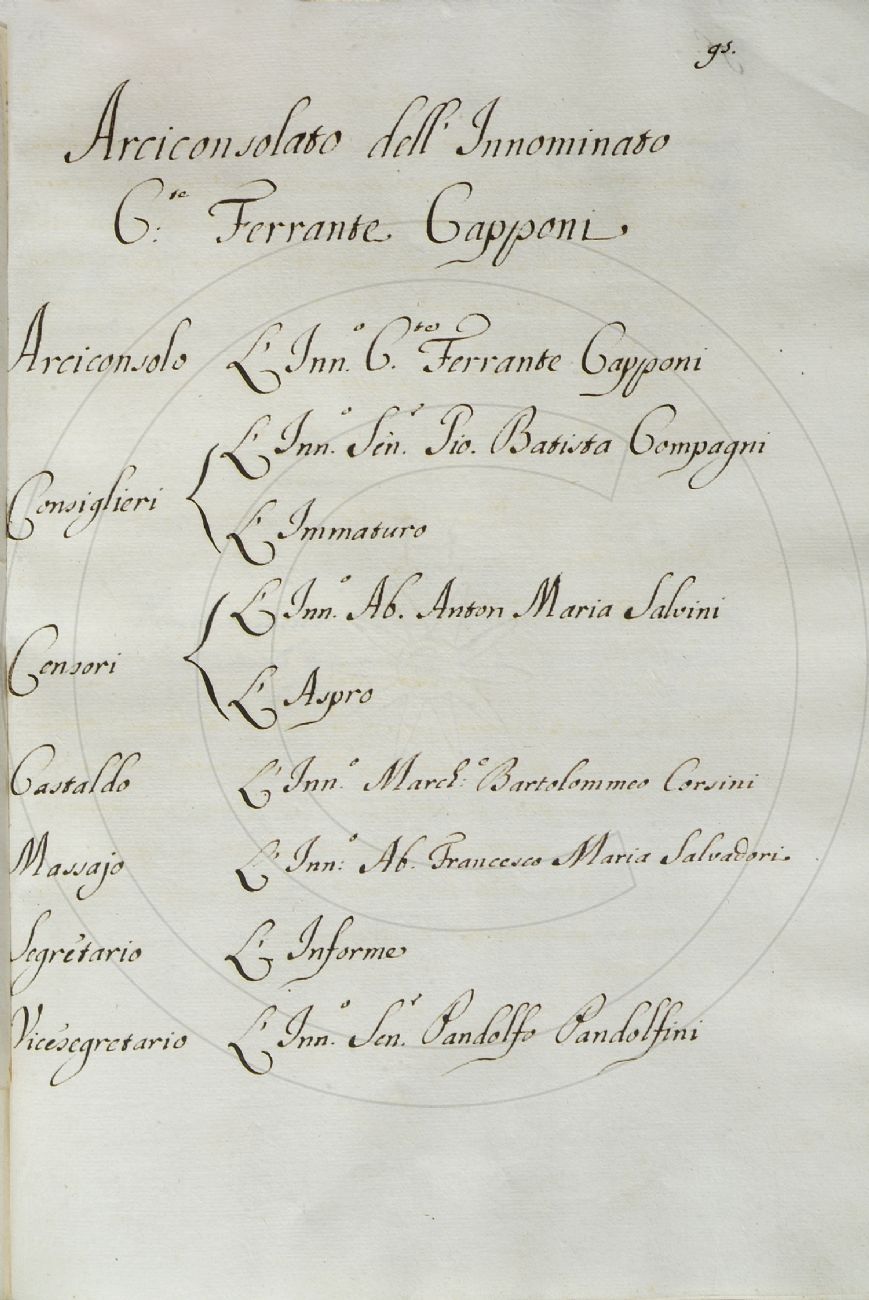 95.
Arciconsolato dell' Innominato
C.te Ferrante Capponi
Arciconsolo L' Inn.o C.te Ferrante Capponi
L' Inn.o Sen.r Gio. Batista Compagni
Consiglieri
L' Immaturo
L' Inn.o Ab. Anton Maria Salvini
Censori
L' Aspro
Castaldo L' Inn.o March.e Bartolommeo Corsini
Massajo L' Inn.o Ab. Francesco Maria Salvadori
Segretario L' Informe
Vicesegretario L' Inn.o Sen.r Pandolfo Pandolfini